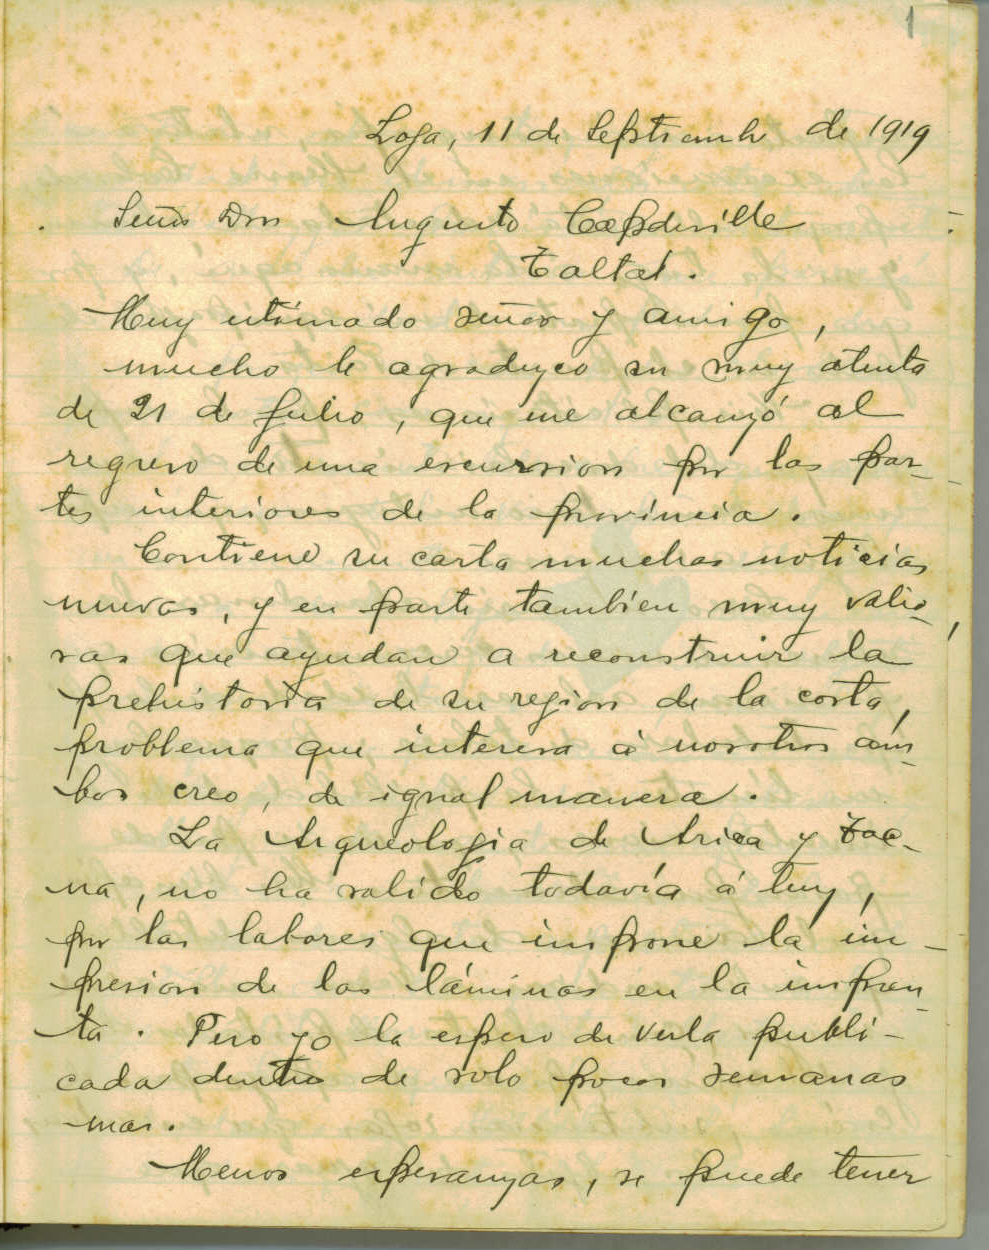 1
Loja, 11 de Septiembr de 1919
Señor Don Augusto Capdeville
Taltal.
Muy estimado señor y amigo,
mucho le agradezco su muy atenta
de 21 de Julio, que me alcanzó al
regreso de una escursion por las par-
tes interiores de la provincia.
Contiene su carta muchas noticias
nuevas, y en parte tambien muy valio-
sas que ayudan a reconstruir la
prehistoria de su region de la costa,
problema que interesa á nosotros am-
bos creo, de igual manera.
La Arqueologia de Arica y Tac-
na, no ha salido todavía á luz,
por las labores que impone la im-
presion de las láminas en la impren-
ta. Pero yo la espero de verla publi-
cada dentro de solo pocas semanas
mas.
Menos esperanzas, se puede tener